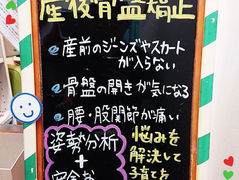 産後骨盤矯正
産前のジーンズやスカート
が入らない
骨盤の開きが気になる
腰・股関節が痛い
姿勢分析
+
悩みを
解決して
子育てを